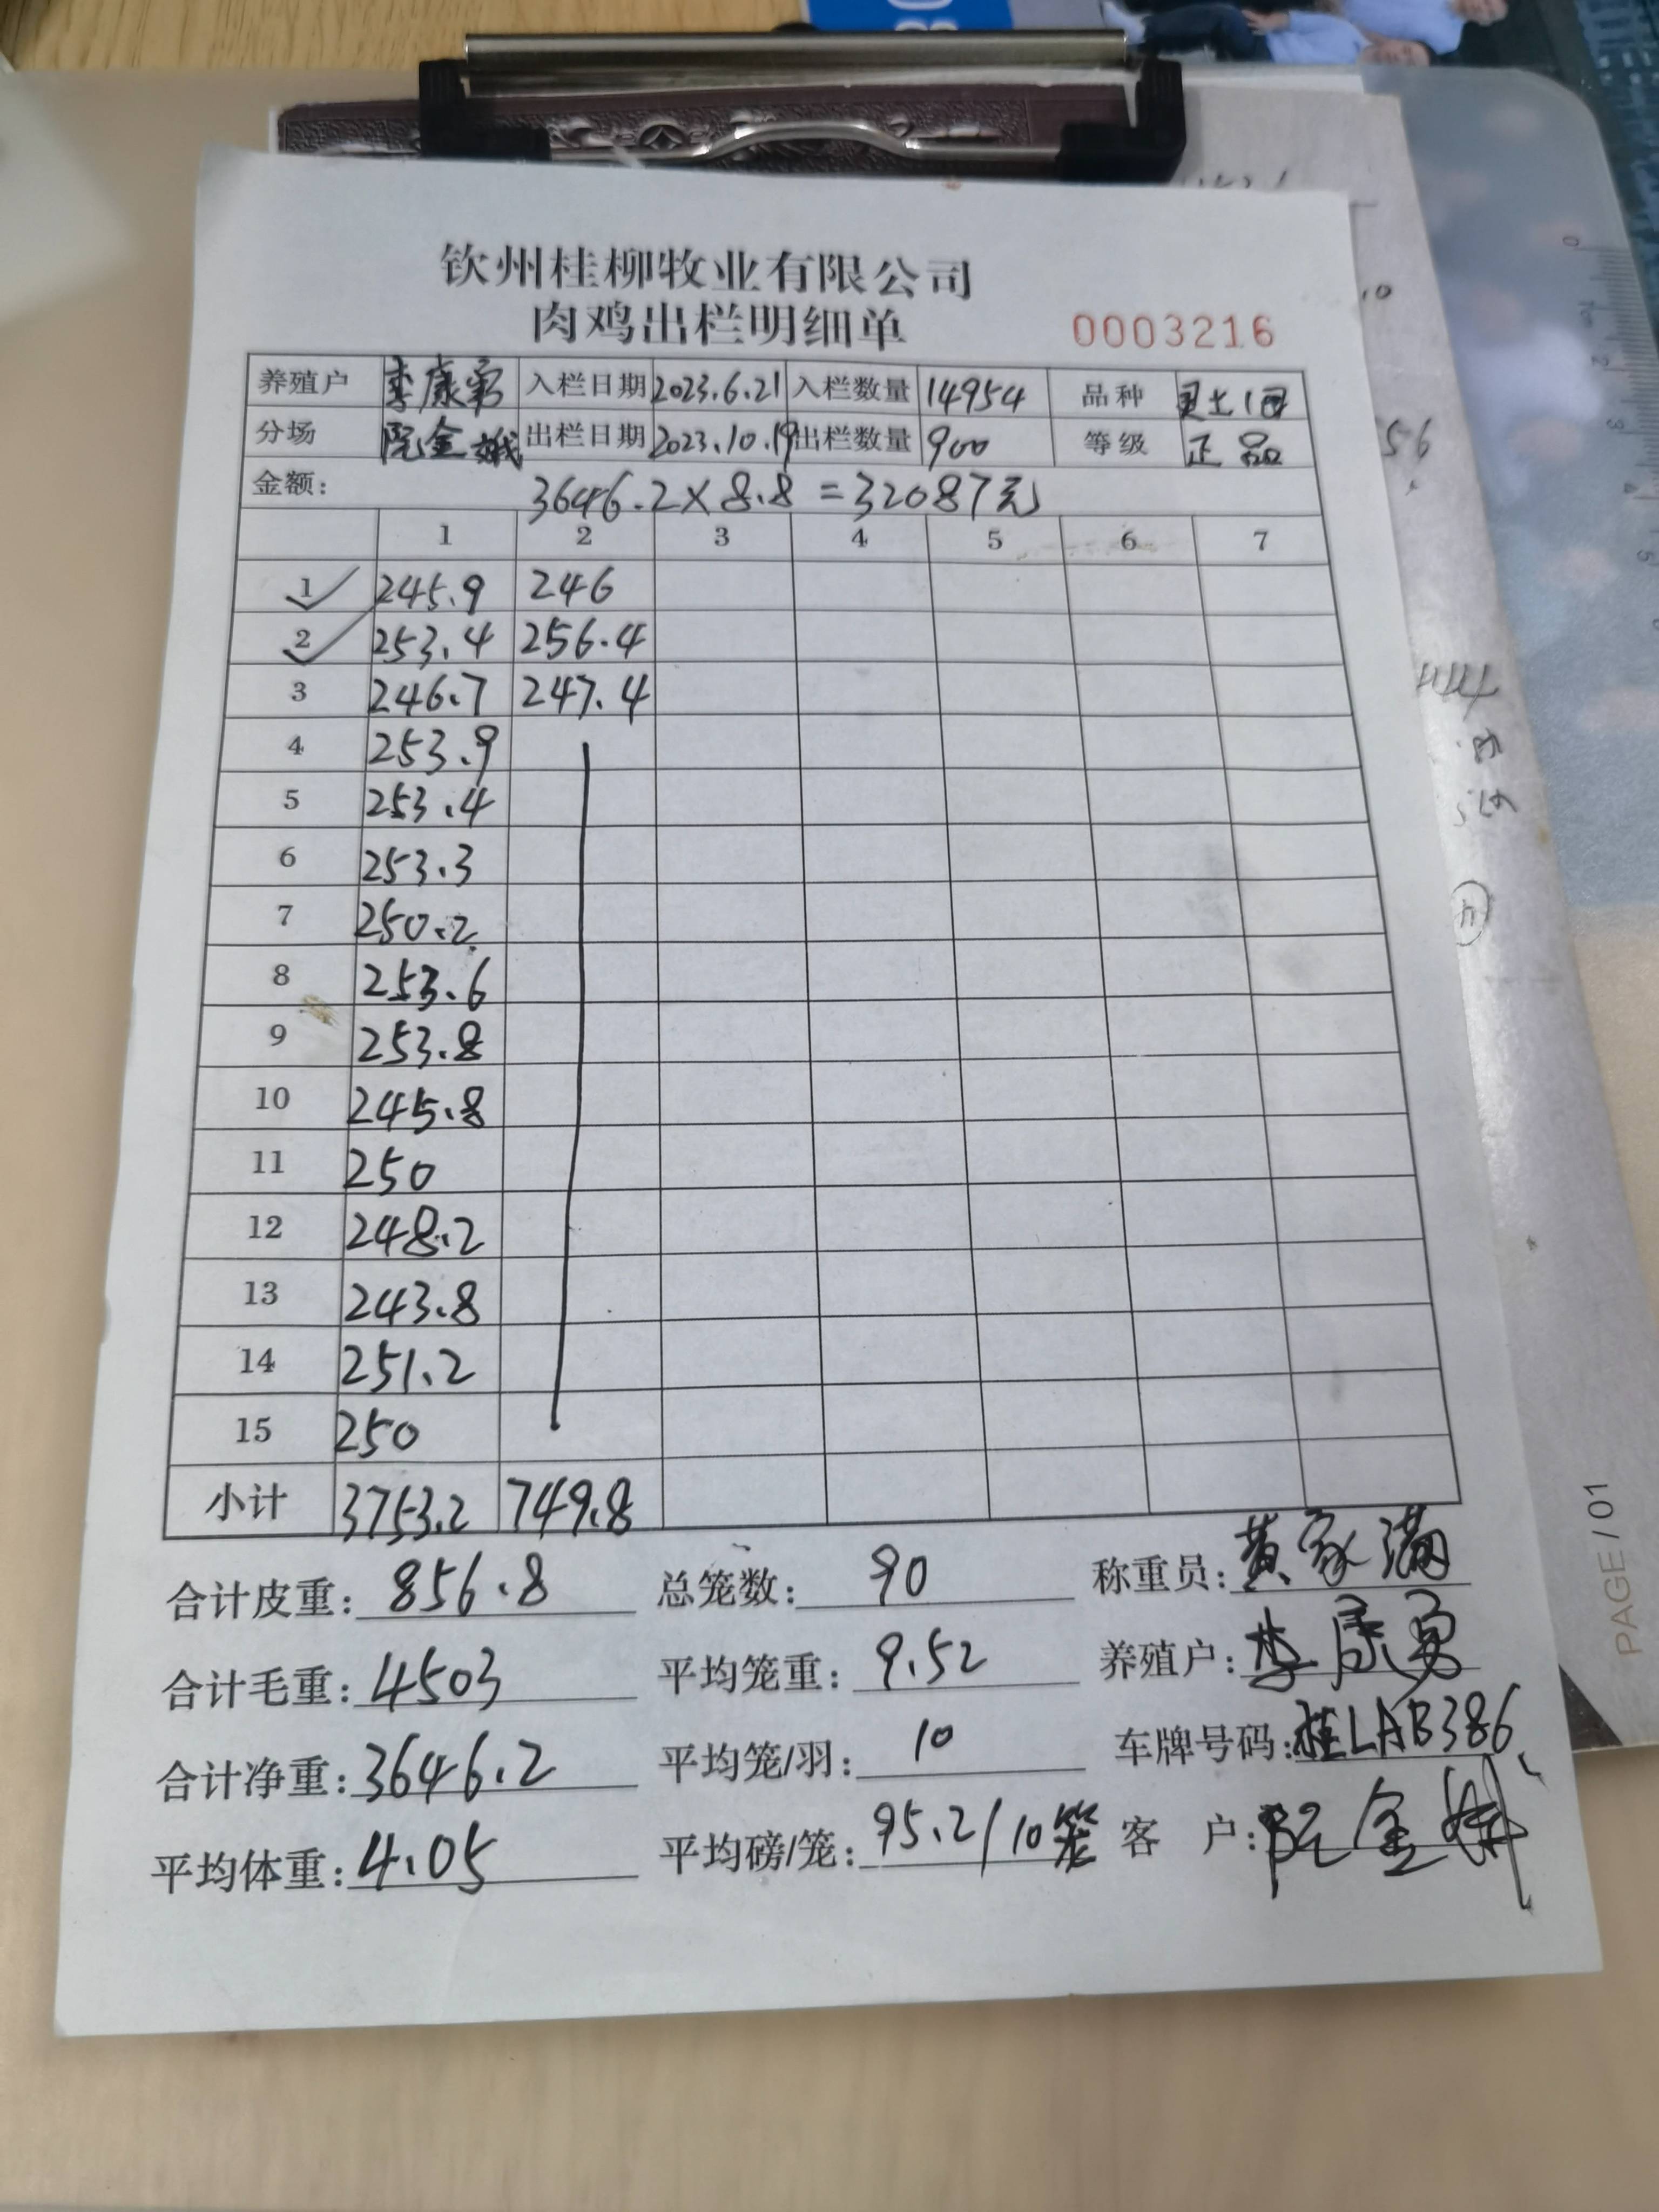 钦州桂柳牧业有限公司
肉鸡出栏明细单 0003216
养殖户 李康勇 入栏日期 2023.6.21 入栏数量 14954 品种
分场 阮金娥 出栏日期 2023.10.19 出栏数量 900 等级 正品
金额: 3646.2×8.8=32087元
1 2 3 4 5 6 7
1 245.9 246
2 253.4 256.4
3 246.7 247.4
4 253.9
5 253.4
6 253.3
7 250.2
8 253.6
9 253.8
10 245.8
11 250
12 248.2
13 243.8
14 251.2
15 250
小计 3753.2 749.8
合计皮重: 856.8 总笼数: 90 称重员: 黄家满
合计毛重: 4503 平均笼重: 9.52 养殖户: 李康勇
合计净重: 3646.2 平均笼/羽: 10 车牌号码: 桂LAB386
平均体重: 4.05 平均磅/笼: 95.2/10笼 客 户: 阮金娥
PAGE/01